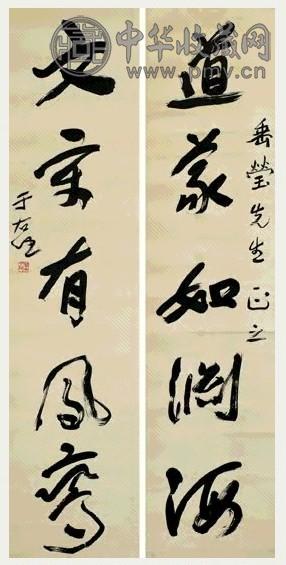 中华收藏网
www.pmv.cn
垂瑩先生正之
道義如淵海
文章有鳳鸞
于右任